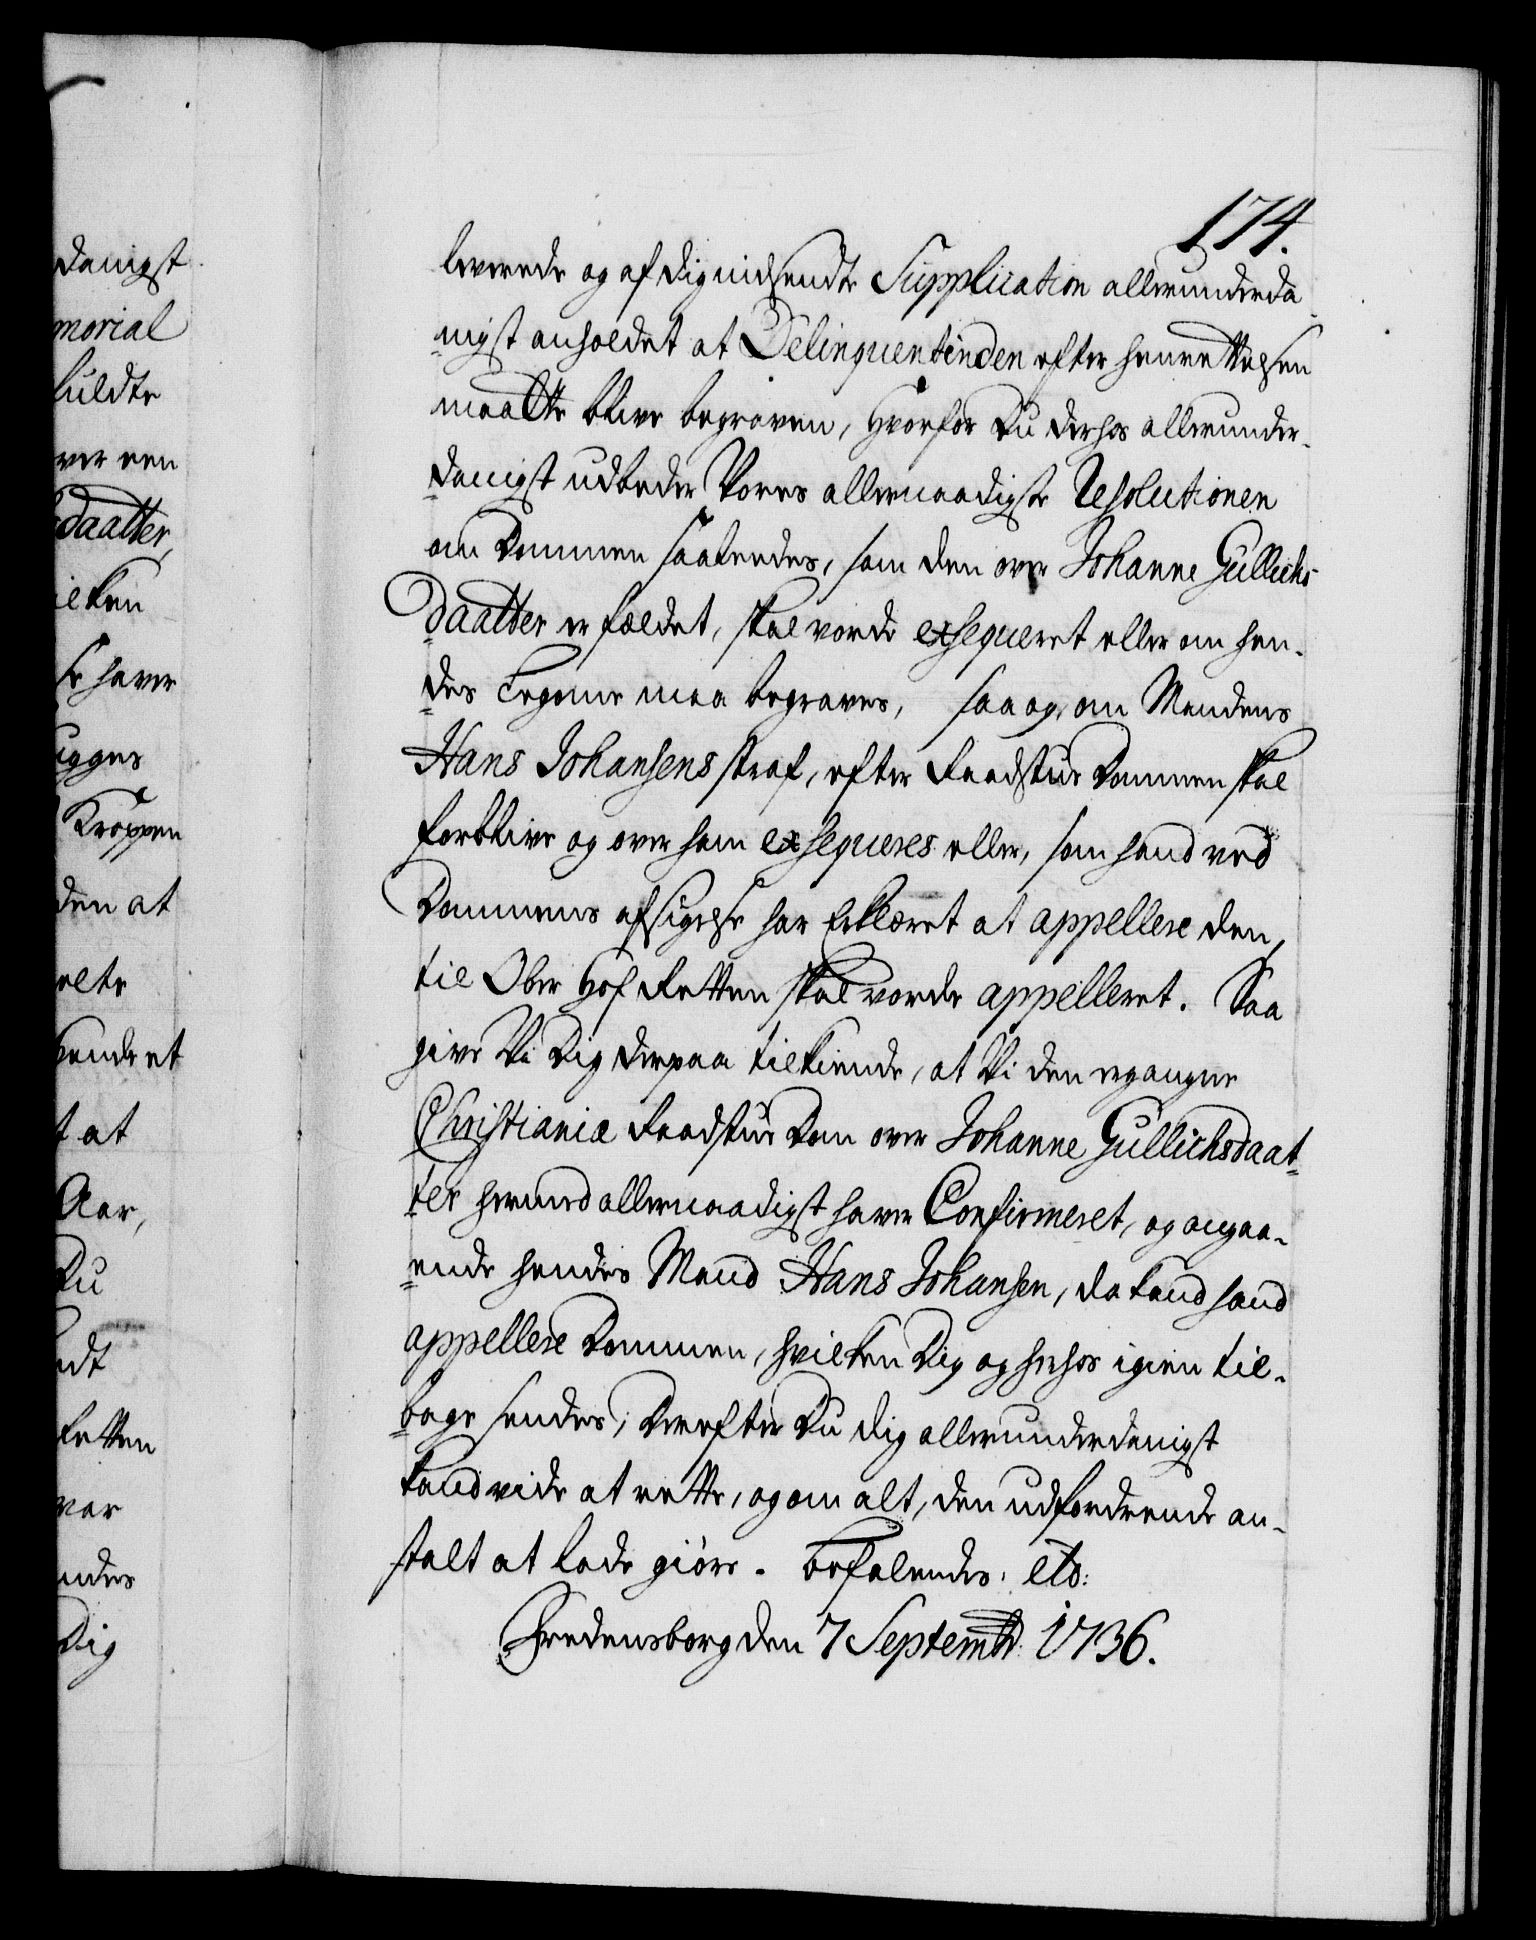 danigst
morial
kuldte
ver een
daatter,
ilken
se haver
ugges
Kroppen
den at
elte
hendret
t at
Aar,
Du
ndt
Retten
var
ndes
Dig
174.
leverede og af Dig indsendte Supplication allerunderda
nigst anholdet at Delinquentinden efter henrettelsen
maatte blive begraven, hvorfor Du derhos allerunder-
danigst udbeder Vores allernaadigste Resolutionen
om Dommen saaledes, som den over Johanne Gullichs
daatter er fældet, skal vorde exseqveret eller om hen-
des Legeme maa begraves, saa og, om Mandens
Hans Johansens straf, efter Raadstue Dommen skal
forblive og over ham exseqveres eller, som hand ved
Dommens afsigelse har Erklæret at appellere den,
til Ober Hof Retten skal vorde appelleret. Saa
give Vi Dig derpaa tilkiende, at Vi den ergangne
Christianiæ Raadstue Dom over Johanne Gullichsdaat-
ter hermed allernaadigst haver Confirmeret, og angaa-
ende hendes Mand Hans Johansen, da kand hand
appellere Dommen, hvilken Dig og herhos igien til-
bage sendes; Derefter Du dig allerunderdanigst
kand vide at rette, og om alt, den udfordrende an-
stalt at lade giöre. Befalendes etc:
Fredensborg den 7 Septembr: 1736.